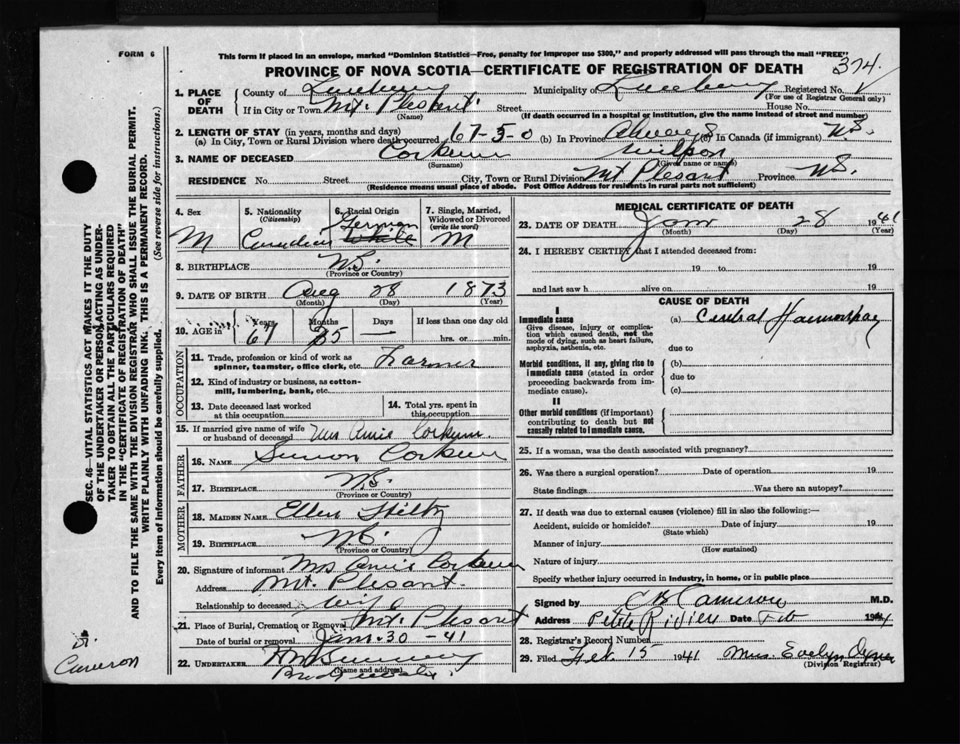 FORM 6
This form if placed in an envelope, marked "Dominion Statistics—Free, penalty for improper use $300," and properly addressed will pass through the mail "FREE"
PROVINCE OF NOVA SCOTIA—CERTIFICATE OF REGISTRATION OF DEATH
374.
1. PLACE OF DEATH
County of Lunenburg Municipality of Lunenburg Registered No.
(For use of Registrar General only)
If in City or Town Mt. Plesant. Street House No.
(Name) (If death occurred in a hospital or institution, give the name instead of street and number)
2. LENGTH OF STAY (in years, months and days)
(a) In City, Town or Rural Division where death occurred 67-5-0 (b) In Province Always (c) In Canada (if immigrant) N.S.
3. NAME OF DECEASED Corkum
(Surname) (Given name or names)
RESIDENCE No. Street City, Town or Rural Division Mt Plesant Province N.S.
(Residence means usual place of abode. Post Office Address for residents in rural parts not sufficient)
4. Sex
M
5. Nationality
(Citizenship)
Canadian
6. Racial Origin
German
White
7. Single, Married, Widowed or Divorced
(write the word)
M
8. BIRTHPLACE N.S.
(Province or Country)
9. DATE OF BIRTH Aug 28 1873
(Month) (Day) (Year)
10. AGE in Years Months Days If less than one day old
67 5 — hrs. or min.
OCCUPATION
11. Trade, profession or kind of work as spinner, teamster, office clerk, etc. Farmer
12. Kind of industry or business, as cotton-mill, lumbering, bank, etc.
13. Date deceased last worked at this occupation
14. Total yrs. spent in this occupation
15. If married give name of wife or husband of deceased Mrs Amie Corkum
FATHER
16. NAME Simon Corkum
17. BIRTHPLACE N.S.
(Province or Country)
MOTHER
18. MAIDEN NAME Ellen
19. BIRTHPLACE N.S.
(Province or Country)
20. Signature of informant Mrs Amie Corkum
Address Mt. Plesant.
Relationship to deceased wife
21. Place of Burial, Cremation or Removal Mt. Plesant
Date of burial or removal Jan. 30 - 41
22. UNDERTAKER
(Name and address)
MEDICAL CERTIFICATE OF DEATH
23. DATE OF DEATH Jan 28 1941
(Month) (Day) (Year)
24. I HEREBY CERTIFY that I attended deceased from:
19 to 19
and last saw h alive on 19
CAUSE OF DEATH
I
Immediate cause
Give disease, injury or complication which caused death, not the mode of dying, such as heart failure, asphyxia, asthenia, etc.
(a)
due to
Morbid conditions, if any, giving rise to immediate cause (stated in order proceeding backwards from immediate cause).
(b)
due to
(c)
II
Other morbid conditions (if important) contributing to death but not causally related to immediate cause.
25. If a woman, was the death associated with pregnancy?
26. Was there a surgical operation? Date of operation 19
State findings Was there an autopsy?
27. If death was due to external causes (violence) fill in also the following:—
Accident, suicide or homicide? Date of injury 19
(State which)
Manner of injury
(How sustained)
Nature of injury
Specify whether injury occurred in industry, in home, or in public place
Signed by C B Cameron M.D.
Address Petite Riviere Date Feb 1941
28. Registrar's Record Number
29. Filed Feb. 15 1941 Mrs. Evelyn
(Division Registrar)
SEC. 46—VITAL STATISTICS ACT MAKES IT THE DUTY
OF THE UNDERTAKER OR PERSON ACTING AS UNDER-
TAKER TO OBTAIN ALL THE PARTICULARS REQUIRED
IN THE "CERTIFICATE OF REGISTRATION OF DEATH"
AND TO FILE THE SAME WITH THE DIVISION REGISTRAR WHO SHALL ISSUE THE BURIAL PERMIT.
WRITE PLAINLY WITH UNFADING INK. THIS IS A PERMANENT RECORD.
Every item of information should be carefully supplied. (See reverse side for instructions.)
Dr.
Cameron